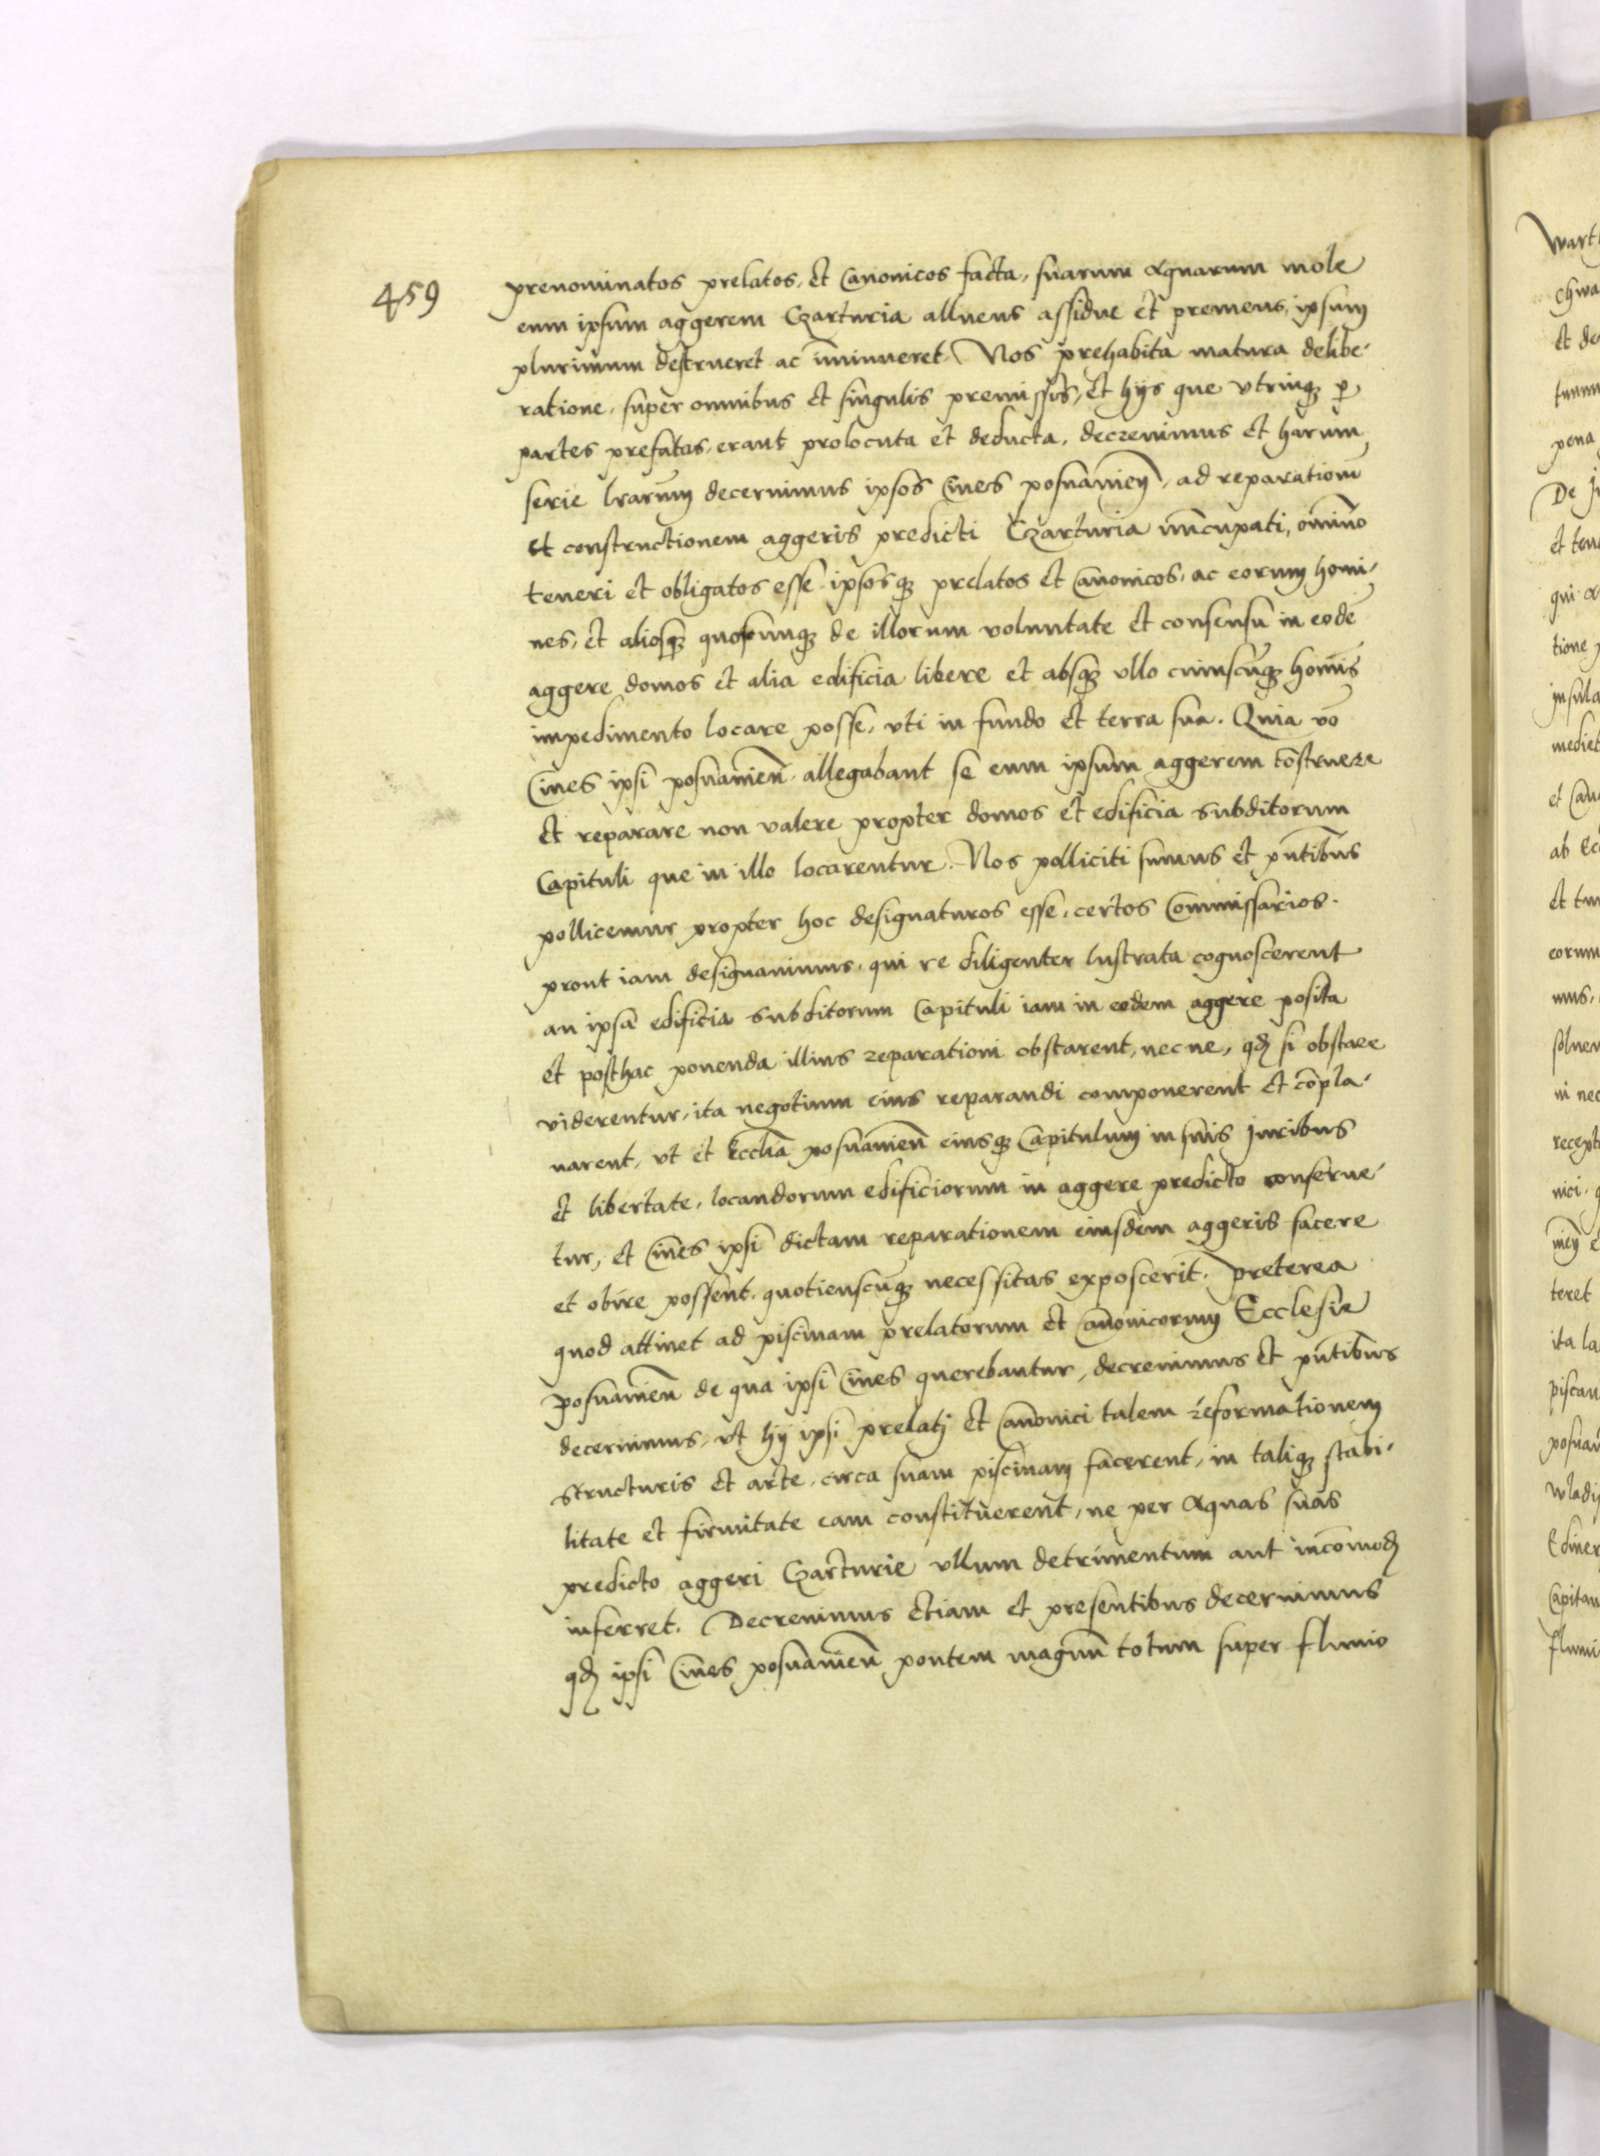 459
prenominatos prelatos, et Canonicos facta, suarum aquarum mole
eum ipsum aggerem Czarturia alluens assidue et premens, ipsum
plurimum destrueret ac iminueret. Nos prehabita matura delibe-
ratione, super omnibus et singulis premissis, et hijs que utrinqz p
partes prefatas erant prolocuta et deducta, decrevimus et harum
serie lrarum decernimus ipsos Cives posnanien, ad reparationem
et constructionem aggeris predicti Czarturia nuncupati, omnino
teneri et obligatos esse ipsosqz prelatos et Canonicos, ac eorum homi-
nes, et aliosqz quoscunqz de illorum voluntate et consensu in eode
aggere domos et alia edificia libere et absqz ullo cuiuscuqz homis
impedimento locare posse, uti in fundo et terra sua. Quia vo
Cives ipsi posnanien allegabant se eum ipsum aggerem costruere
et reparare non valere propter domos et edificia subditorum
Capituli que in illo locarentur. Nos polliciti sumus et pntibus
pollicemur propter hoc designaturos esse certos Commissarios.
prout iam designavimus, qui re diligenter lustrata cognoscerent
an ipsa edificia subditorum Capituli iam in eodem aggere posita
et posthac ponenda illius reparationi obstarent, nec ne, qd si obstare
viderentur, ita negotium eius reparandi componerent et copla-
narent, ut et Ecclia posnanien eiusqz Capitulum in suis juribus
et libertate, locandorum edificiorum in aggere predicto conserve-
tur, et Cives ipsi dictam reparationem eiusdem aggeris facere
et obire possent, quotienscuqz necessitas exposcerit. Preterea
quod attinet ad piscinam prelatorum et canonicorum Ecclesie
posnanien de qua ipsi Cives querebantur, decrevimus et pntibus
decernimus, ut hij ipsi prelatj et Canonici talem reformationem
structuris et arte, circa suam piscinam facerent, in taliqz stabi-
litate et firmitate eam constituerent, ne per aquas suas
predicto aggeri Czarturie ullum detrimentum aut incomod
inferret. Decrevimus etiam et presentibus decernimus
qd ipsi Cives posnanien pontem magnu totum super fluvio